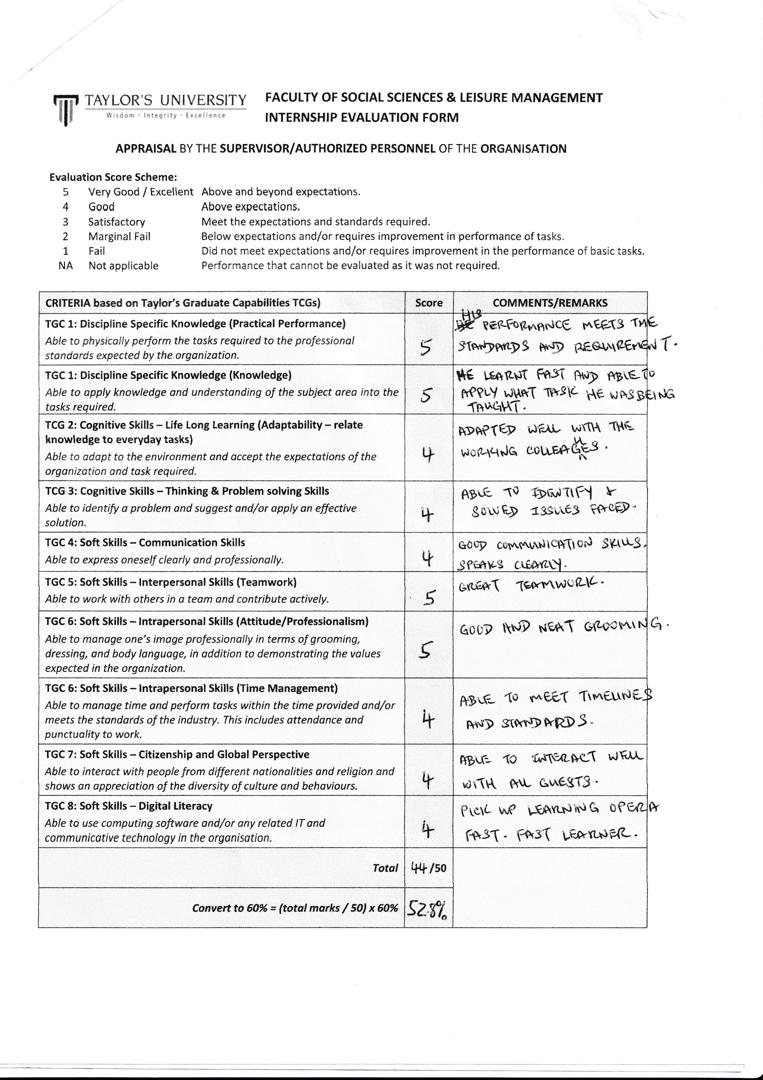 TAYLOR'S UNIVERSITY
Wisdom · Integrity · Excellence
FACULTY OF SOCIAL SCIENCES & LEISURE MANAGEMENT
INTERNSHIP EVALUATION FORM
APPRAISAL BY THE SUPERVISOR/AUTHORIZED PERSONNEL OF THE ORGANISATION
Evaluation Score Scheme:
5 Very Good / Excellent Above and beyond expectations.
4 Good Above expectations.
3 Satisfactory Meet the expectations and standards required.
2 Marginal Fail Below expectations and/or requires improvement in performance of tasks.
1 Fail Did not meet expectations and/or requires improvement in the performance of basic tasks.
NA Not applicable Performance that cannot be evaluated as it was not required.
CRITERIA based on Taylor's Graduate Capabilities TCGs) Score COMMENTS/REMARKS
TGC 1: Discipline Specific Knowledge (Practical Performance)
Able to physically perform the tasks required to the professional
standards expected by the organization.
5
HIS PERFORMANCE MEETS THE
STANDARDS AND REQUIREMENT.
TGC 1: Discipline Specific Knowledge (Knowledge)
Able to apply knowledge and understanding of the subject area into the
tasks required.
5
HE LEARNT FAST AND ABLE TO
APPLY WHAT TASK HE WAS BEING
TAUGHT.
TCG 2: Cognitive Skills – Life Long Learning (Adaptability – relate
knowledge to everyday tasks)
Able to adapt to the environment and accept the expectations of the
organization and task required.
4
ADAPTED WELL WITH THE
WORKING
TCG 3: Cognitive Skills – Thinking & Problem solving Skills
Able to identify a problem and suggest and/or apply an effective
solution.
4
ABLE TO IDENTIFY &
SOLVED ISSUES FACED.
TGC 4: Soft Skills – Communication Skills
Able to express oneself clearly and professionally.
4
GOOD COMMUNICATION SKILLS.
SPEAKS CLEARLY.
TGC 5: Soft Skills – Interpersonal Skills (Teamwork)
Able to work with others in a team and contribute actively.
5
GREAT TEAMWORK.
TGC 6: Soft Skills – Intrapersonal Skills (Attitude/Professionalism)
Able to manage one's image professionally in terms of grooming,
dressing, and body language, in addition to demonstrating the values
expected in the organization.
5
GOOD AND NEAT GROOMING.
TGC 6: Soft Skills – Intrapersonal Skills (Time Management)
Able to manage time and perform tasks within the time provided and/or
meets the standards of the industry. This includes attendance and
punctuality to work.
4
ABLE TO MEET TIMELINES
AND STANDARDS.
TGC 7: Soft Skills – Citizenship and Global Perspective
Able to interact with people from different nationalities and religion and
shows an appreciation of the diversity of culture and behaviours.
4
ABLE TO INTERACT WELL
WITH ALL GUESTS.
TGC 8: Soft Skills – Digital Literacy
Able to use computing software and/or any related IT and
communicative technology in the organisation.
4
PICK UP LEARNING OPERA
FAST. FAST LEARNER.
Total 44/50
Convert to 60% = (total marks / 50) x 60% 52.8%